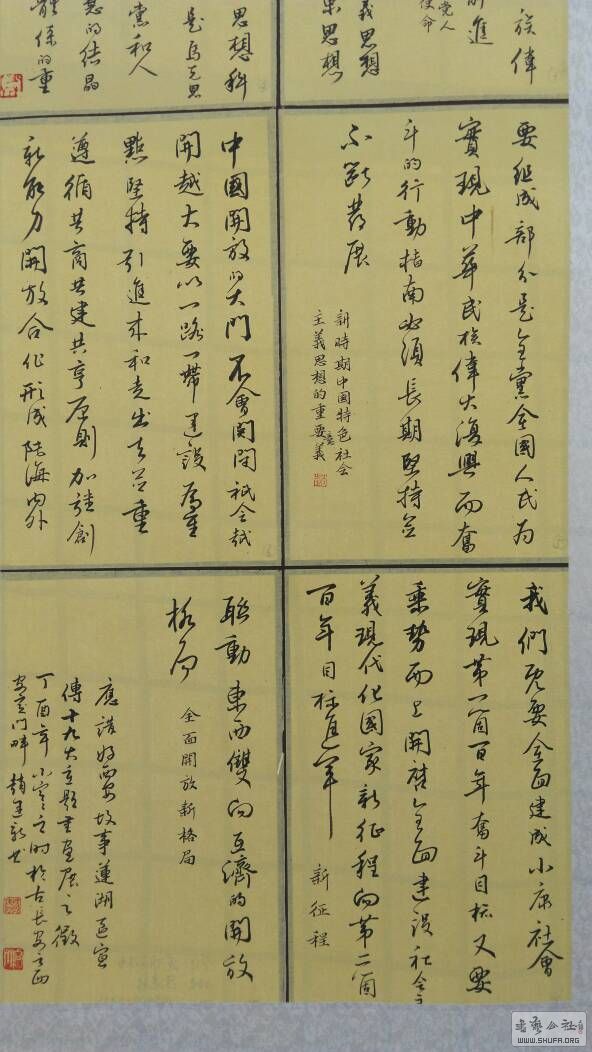 族偉
的進
黨人
使命
義思想
思想
思想科
是馬克思
黨和人
慧的結晶
體係的重
要組成部分是全黨全國人民為
實現中華民族偉大復興而奮
斗的行動指南必須長期堅持並
不斷發展
新時期中國特色社会
主義思想的重要義
中國開放的大門不會関閉衹会越
開越大要以一路一帶建設為重
點堅持引進來和走出去並重
遵循共商共建共享原則加强創
新能力開放合作形成陸海內外
我們既要全面建成小康社會
實現第一個百年奮斗目标又要
乘势而上開啟全面建設社会主
義現代化國家新征程向第二個
百年目标進軍
新征程
聯動東西雙向互濟的開放
格局
全面開放新格局
應講好西安故事蓮湖區宣
傳十九大主題書画展之徵
丁酉年小寒之时於古長安之西
安定门畔趙建新书
書藝公社
WWW.SHUFA.ORG